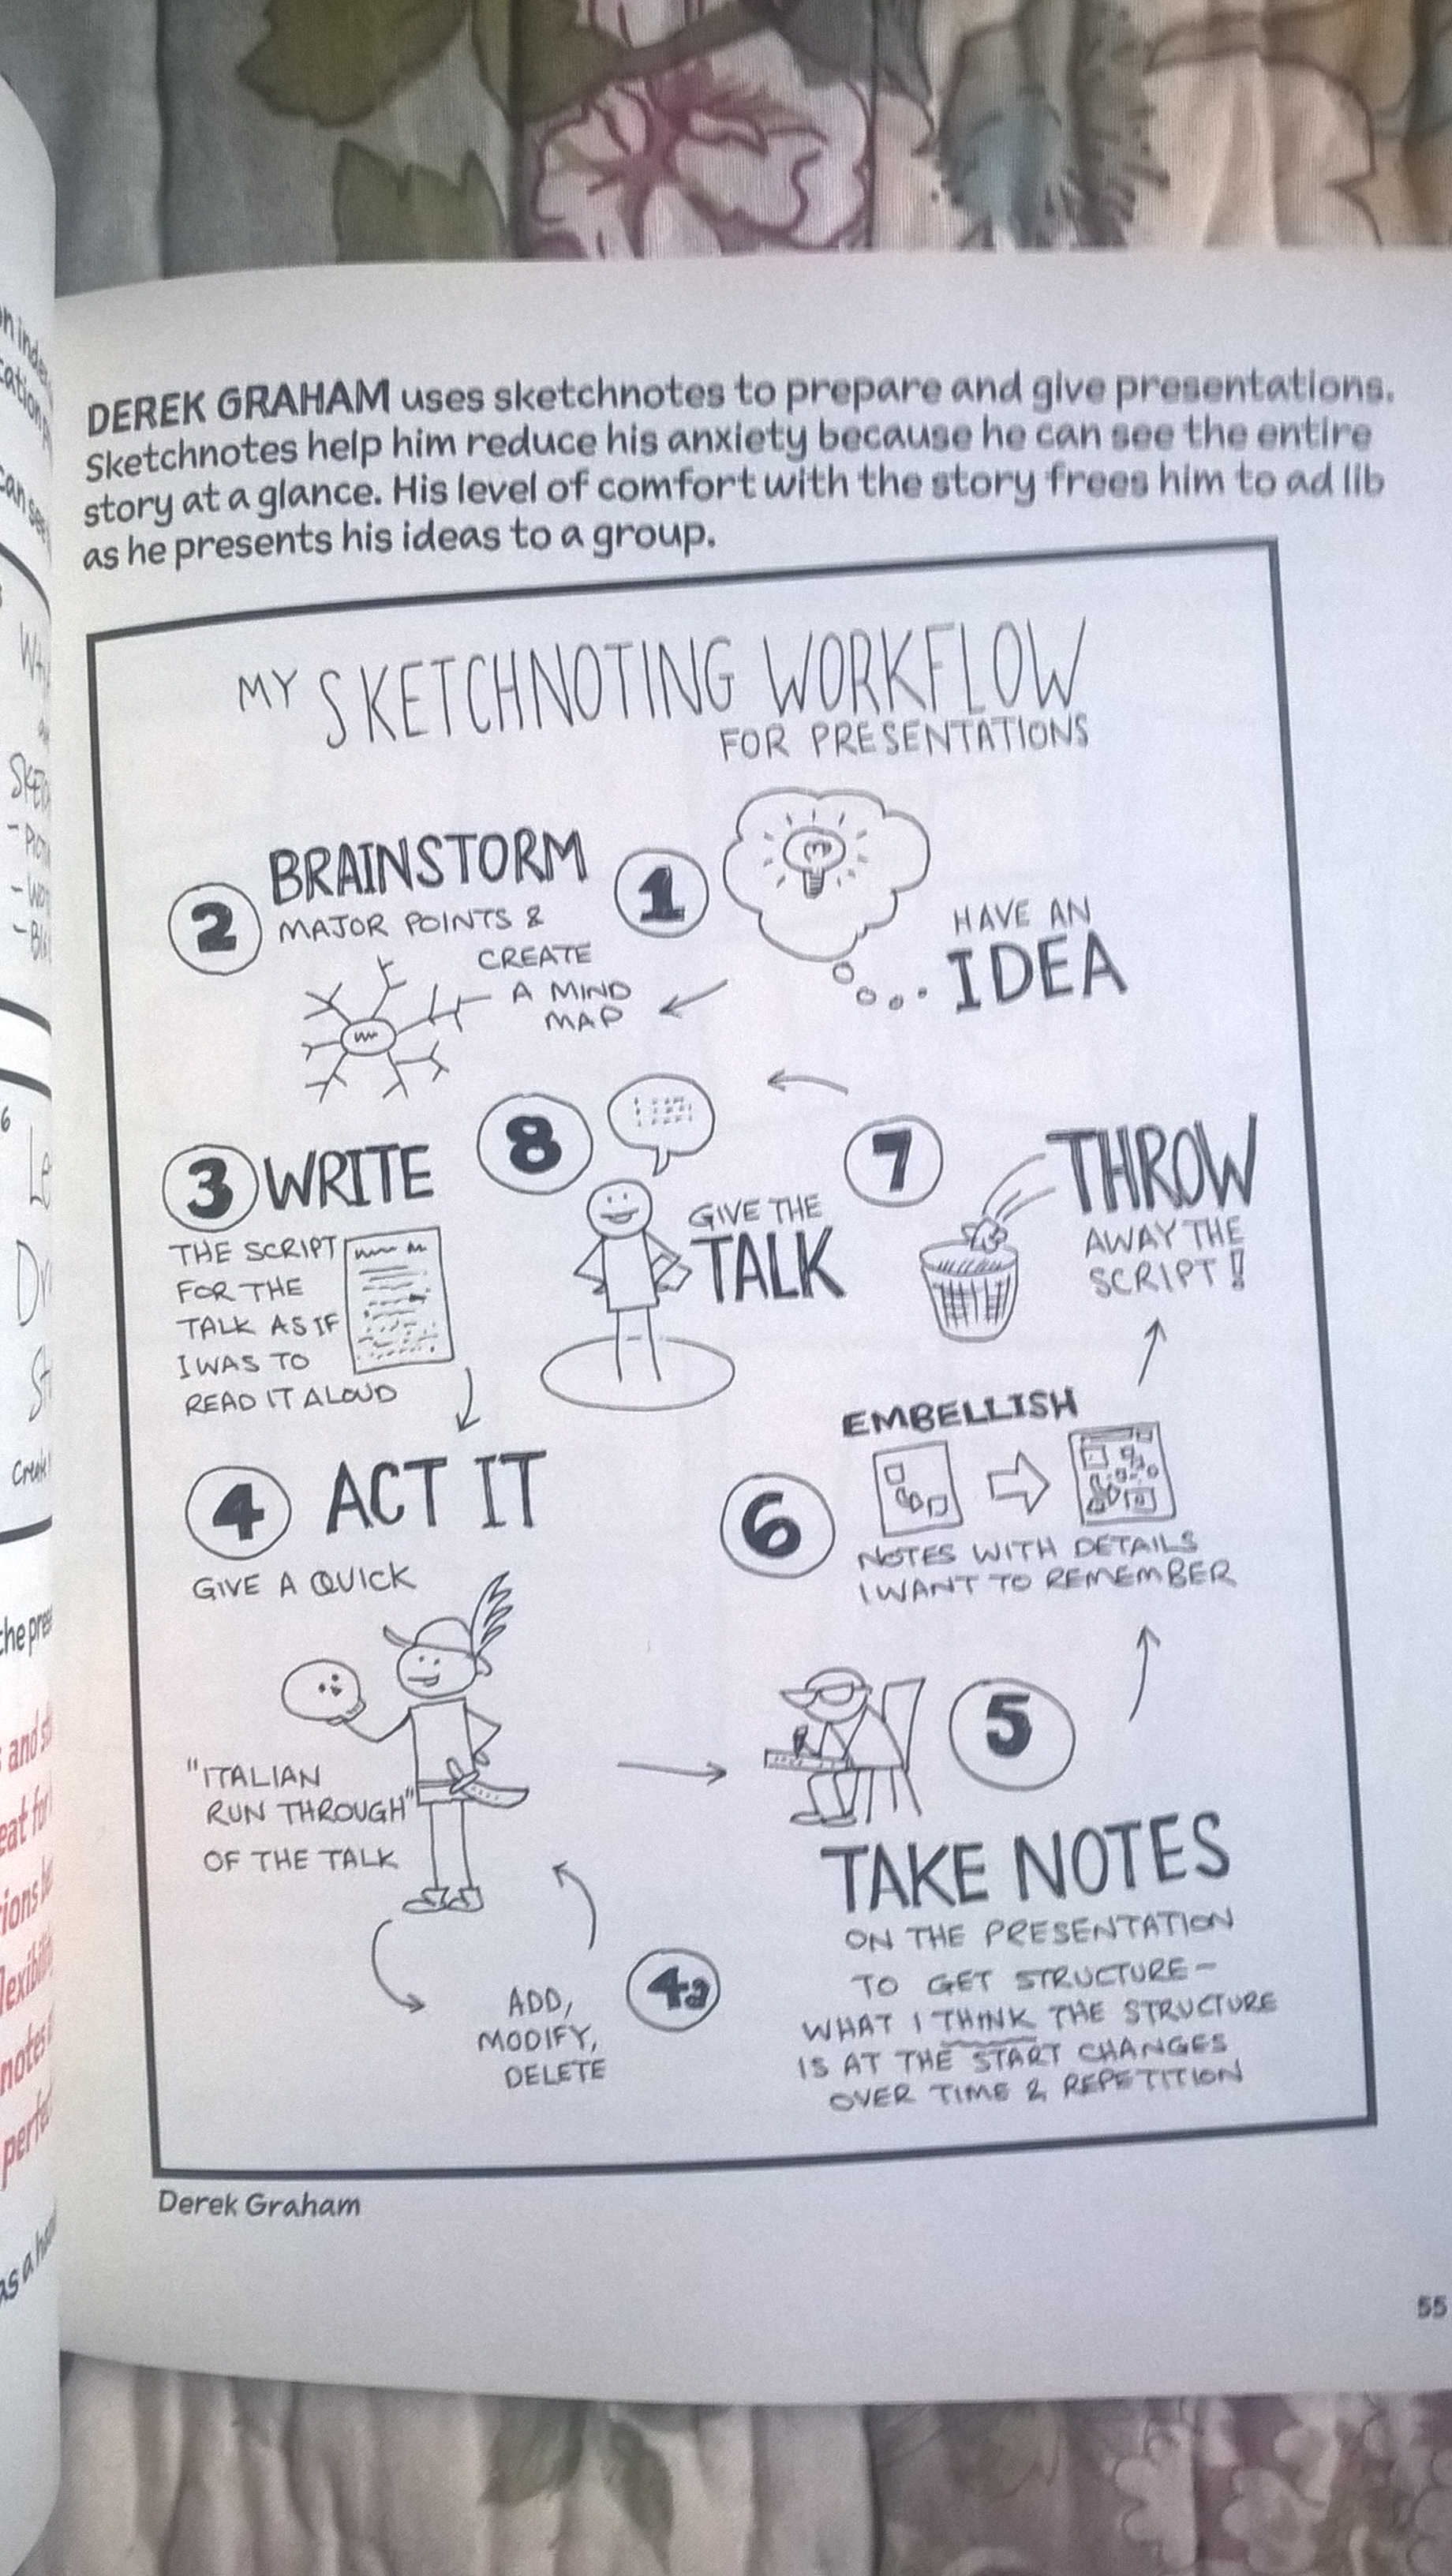 DEREK GRAHAM uses sketchnotes to prepare and give presentations.
Sketchnotes help him reduce his anxiety because he can see the entire
story at a glance. His level of comfort with the story frees him to ad lib
as he presents his ideas to a group.
MY SKETCHNOTING WORKFLOW
FOR PRESENTATIONS
1
HAVE AN
IDEA
2
BRAINSTORM
MAJOR POINTS &
CREATE
A MIND
MAP
3 WRITE
THE SCRIPT
FOR THE
TALK AS IF
I WAS TO
READ IT ALOUD
4 ACT IT
GIVE A QUICK
"ITALIAN
RUN THROUGH"
OF THE TALK
4a
ADD,
MODIFY,
DELETE
5
TAKE NOTES
ON THE PRESENTATION
TO GET STRUCTURE-
WHAT I THINK THE STRUCTURE
IS AT THE START CHANGES
OVER TIME & REPETITION
6
EMBELLISH
NOTES WITH DETAILS
I WANT TO REMEMBER
7
THROW
AWAY THE
SCRIPT!
8
GIVE THE
TALK
Derek Graham
55
the pre
and
notes
as a